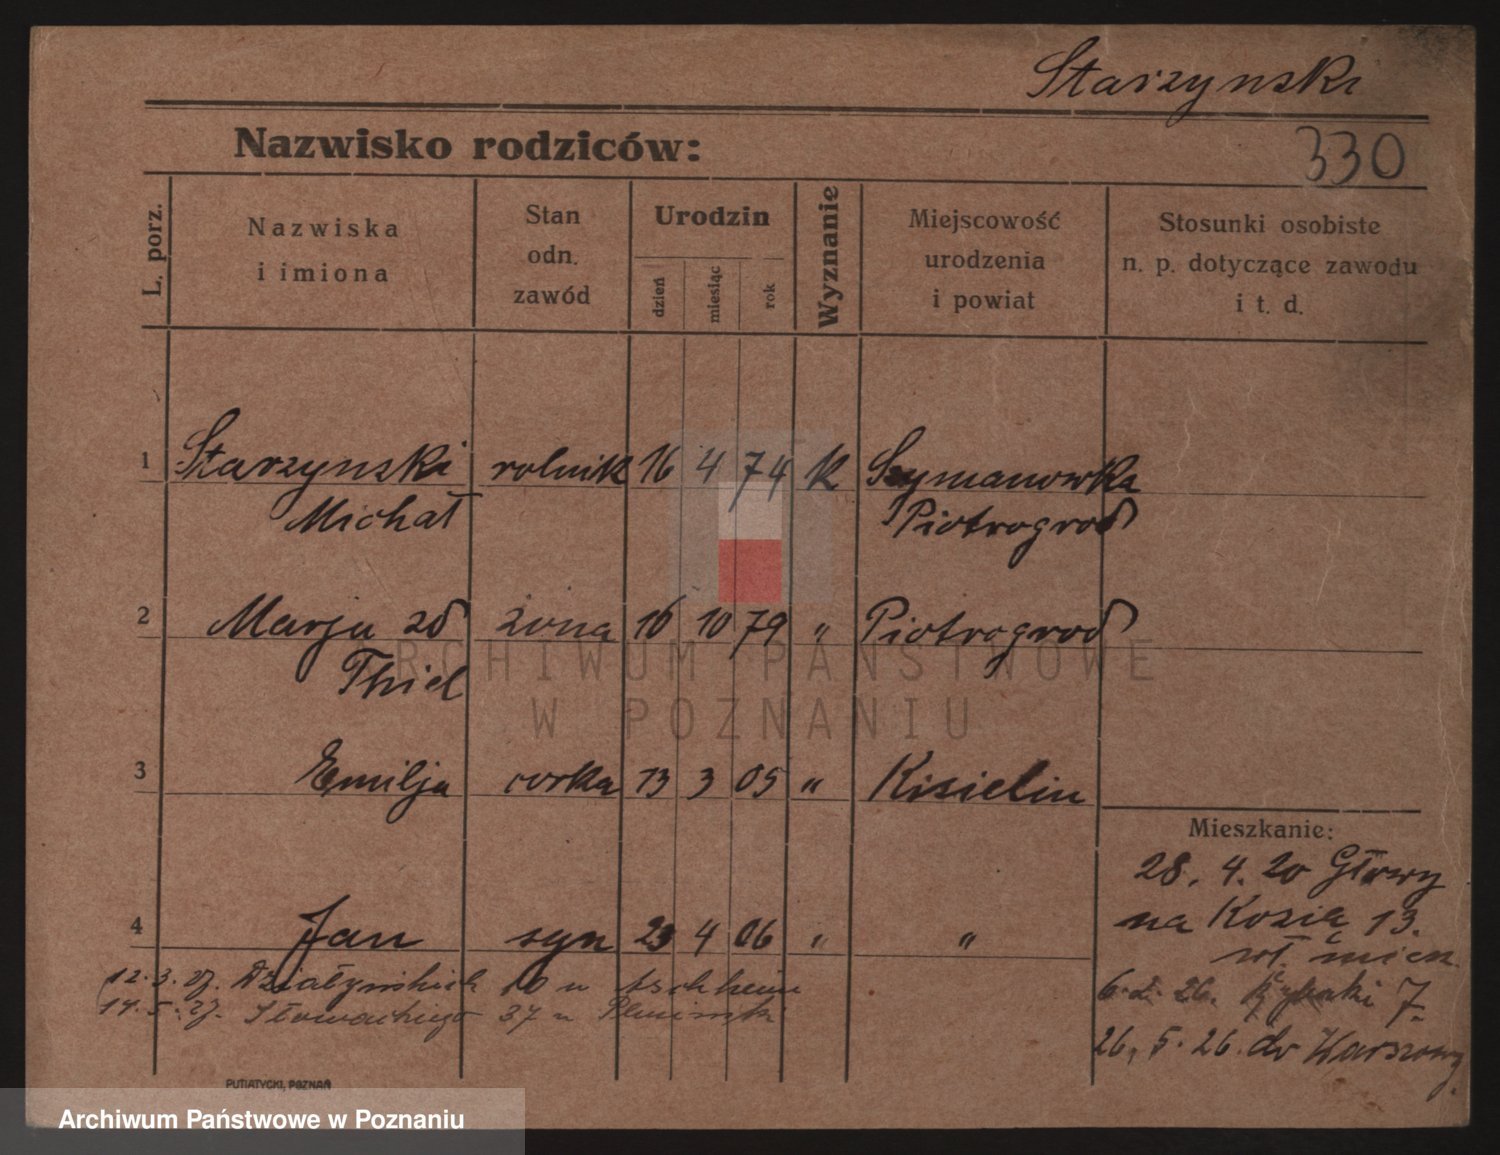 Starzynski
Nazwisko rodziców:
330
L. porz.
Nazwiska
i imiona
Stan
odn.
zawód
Urodzin
dzień
miesiąc
rok
Wyznanie
Miejscowość
urodzenia
i powiat
Stosunki osobiste
n. p. dotyczące zawodu
i t. d.
1 Starzynski rolnik 16 4 74 K Szymanowka
Michał Piotrogrod
2 Marja zd żona 16 10 79 „ Piotrogrod
Thiel
3 Emilja corka 13 3 05 „ Kisielin
4 Jan syn 23 4 06 „ „
Mieszkanie:
28. 4. 20 Główy
na Kozia 13.
wł. miesz.
6. 2. 26. 7.
26. 5. 26. do Warszawy.
12. 3. 27. Działyńskich 10 u
14. 5. 27. Słowackiego 37 u
PUTIATYCKI, POZNAŃ
ARCHIWUM PAŃSTWOWE
W POZNANIU
Archiwum Państwowe w Poznaniu